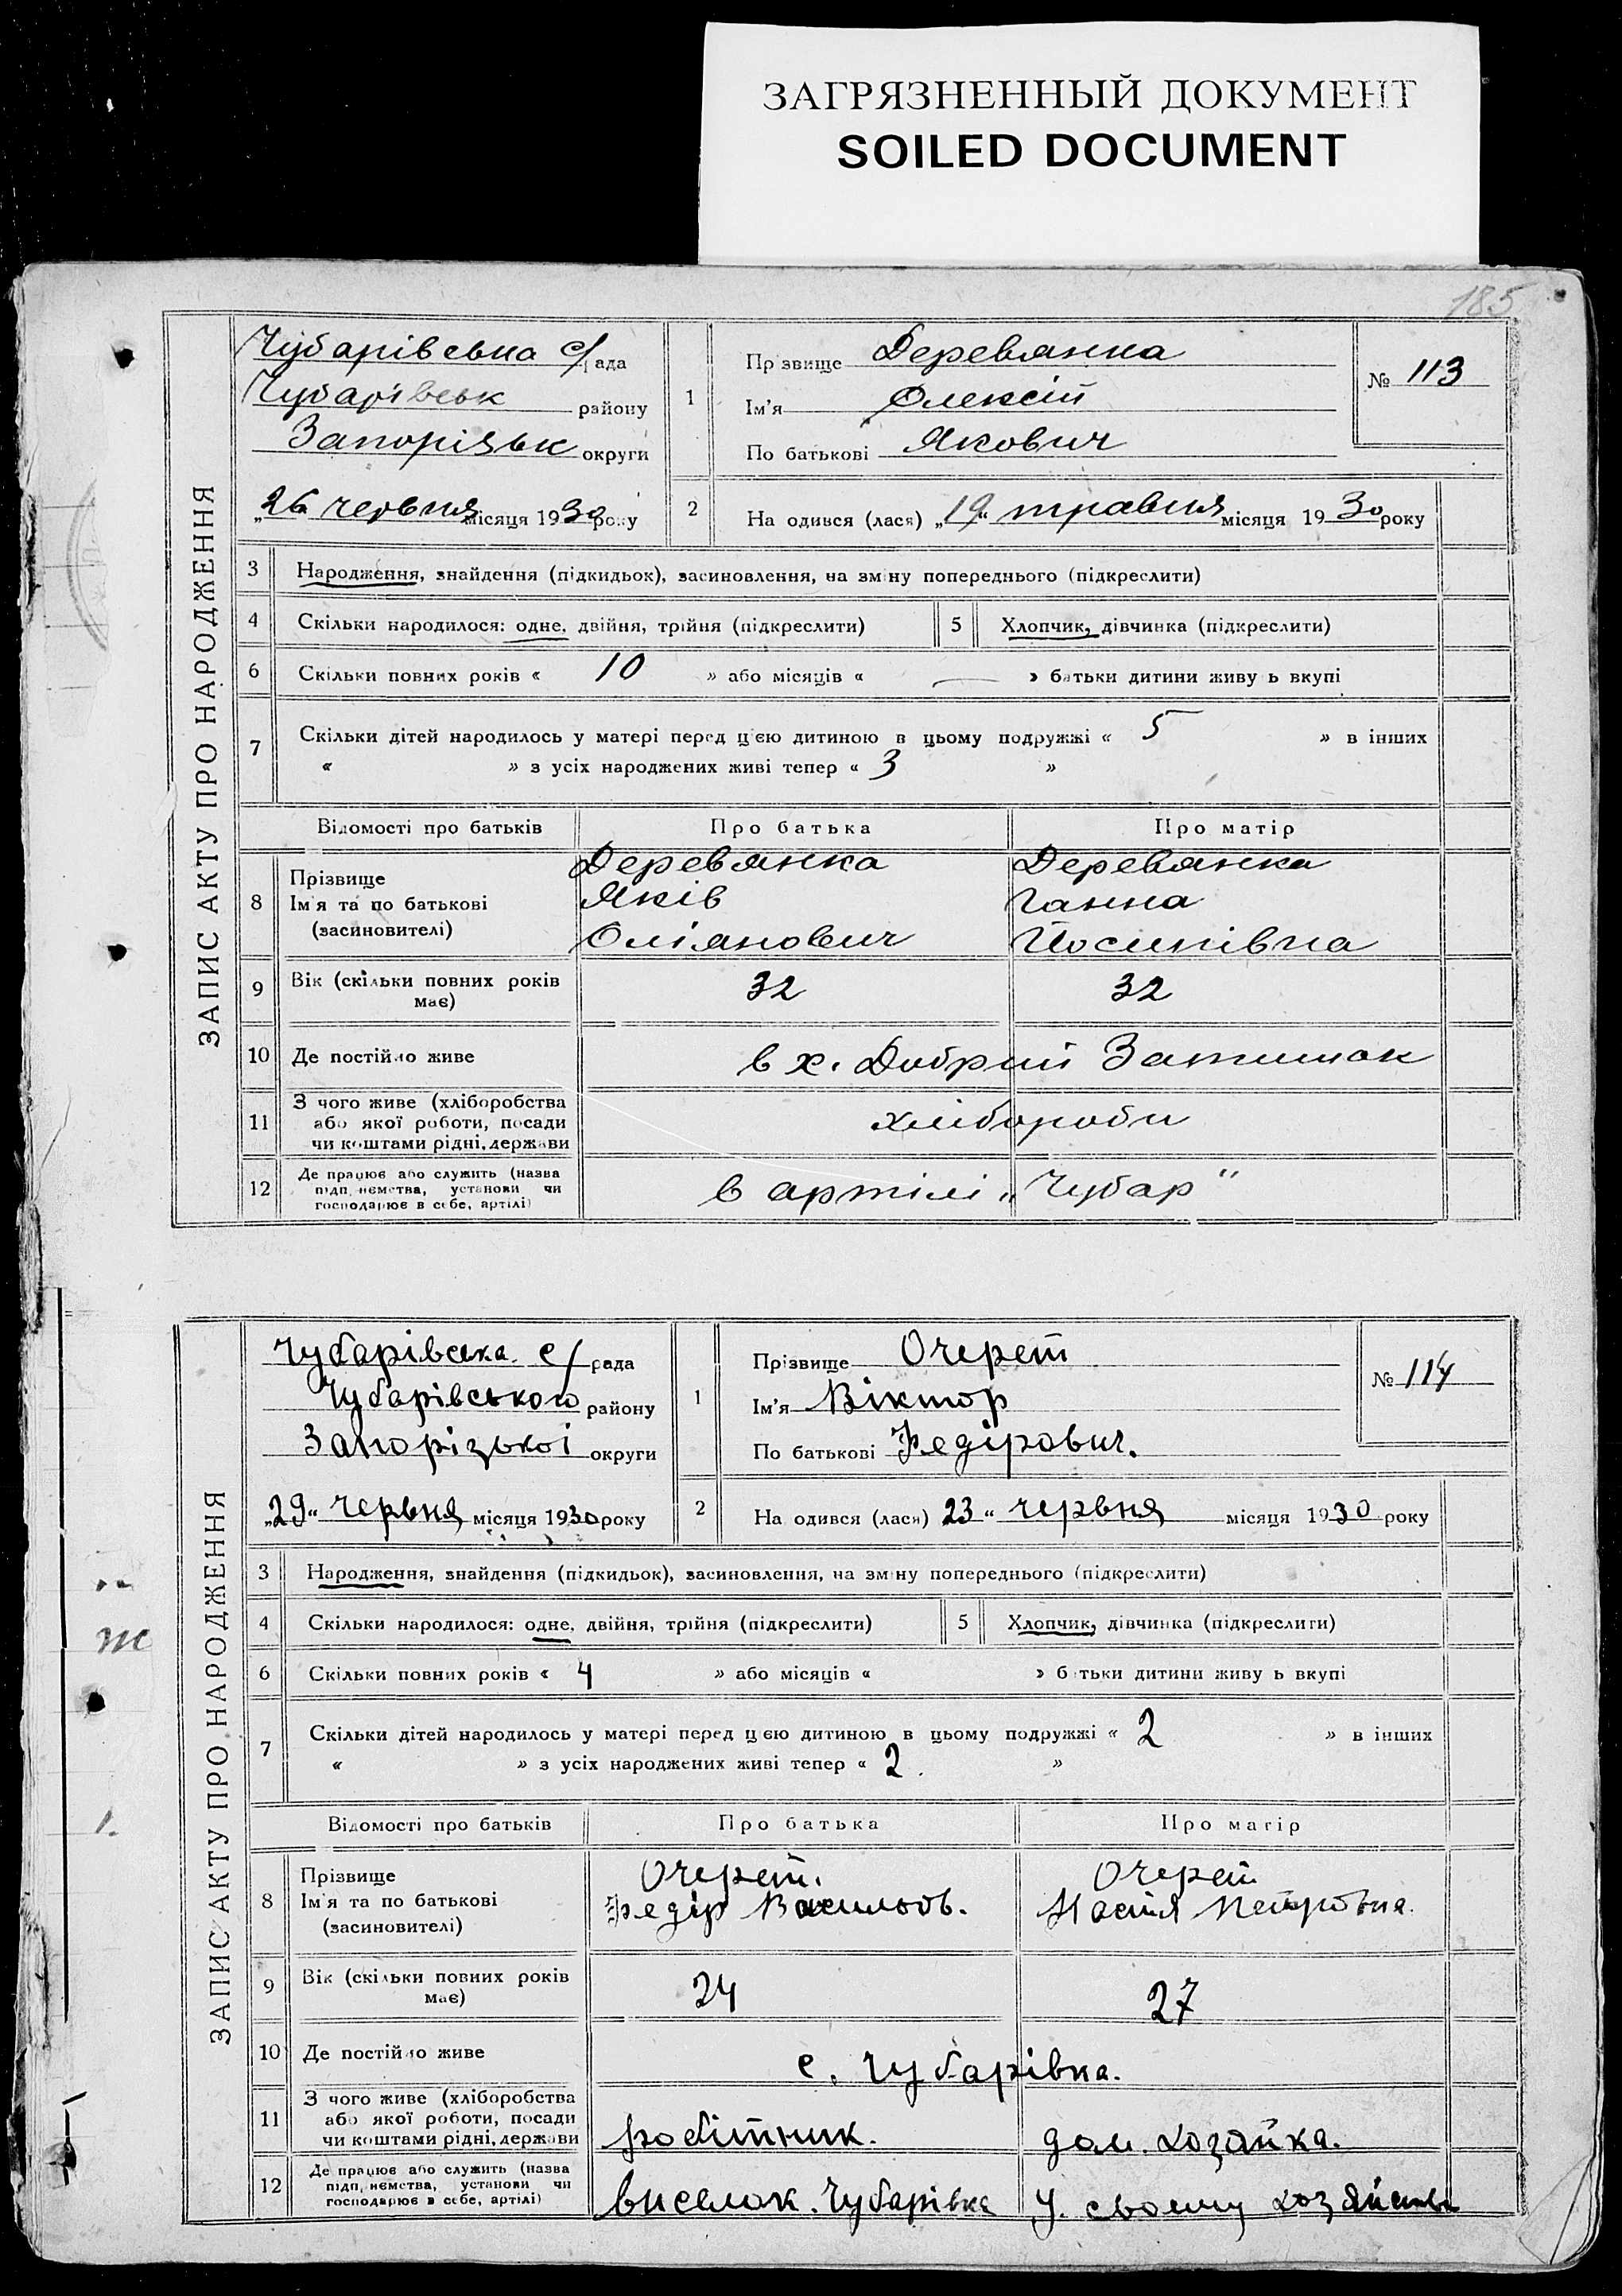 ЗАГРЯЗНЕННЫЙ ДОКУМЕНТ
SOILED DOCUMENT
185
ЗАПИС АКТУ ПРО НАРОДЖЕННЯ
Чубарівська с/рада
Чубарівськ району
Запорізьк округи
„26" червня місяця 1930 року
1
Прізвище Деревянка
Ім'я Олексій
По батькові Якович
№ 113
2
На одився (лася) „19" травня місяця 1930 року
3 Народження, знайдення (підкидьок), засиновлення, на зміну попереднього (підкреслити)
4 Скільки народилося: одне, двійня, трійня (підкреслити)
5 Хлопчик, дівчинка (підкреслити)
6 Скільки повних років « 10 » або місяців « — » батьки дитини живу ь вкупі
7 Скільки дітей народилось у матері перед цією дитиною в цьому подружжі « 5 » в інших
« » з усіх народжених живі тепер « 3 »
Відомості про батьків Про батька Про матір
8 Прізвище Деревянка Деревянка
Ім'я та по батькові Яків Ганна
(засиновителі) Оліянович Йосипівна
9 Вік (скільки повних років має) 32 32
10 Де постійно живе в х. Добрий Затишок
11 З чого живе (хліборобства
або якої роботи, посади хлібороби
чи коштами рідні, держави
12 Де працює або служить (назва
підп,иємства, установи чи в артілі „Чубар"
господарює в себе, артілі)
ЗАПИС АКТУ ПРО НАРОДЖЕННЯ
Чубарівська с/рада
Чубарівського району
Запорізької округи
„29" червня місяця 1930 року
1
Прізвище Очерет
Ім'я Віктор
По батькові Федірович.
№ 114
2
На одився (лася) 23" червня місяця 1930 року
3 Народження, знайдення (підкидьок), засиновлення, на зміну попереднього (підкреслити)
4 Скільки народилося: одне, двійня, трійня (підкреслити)
5 Хлопчик, дівчинка (підкреслити)
6 Скільки повних років « 4 » або місяців « » батьки дитини живу ь вкупі
7 Скільки дітей народилось у матері перед цією дитиною в цьому подружжі « 2 » в інших
« » з усіх народжених живі тепер « 2. »
Відомості про батьків Про батька Про матір
8 Прізвище Очерет. Очерет
Ім'я та по батькові Федір Васильов. Настя Петровна.
(засиновителі)
9 Вік (скільки повних років має) 24 27
10 Де постійно живе с. Чубарівка.
11 З чого живе (хліборобства
або якої роботи, посади робітник. дом. хозяйка.
чи коштами рідні, держави
12 Де працює або служить (назва
підп,иємства, установи чи
господарює в себе, артілі) виселок. Чубарівка У. своему хозяйстві